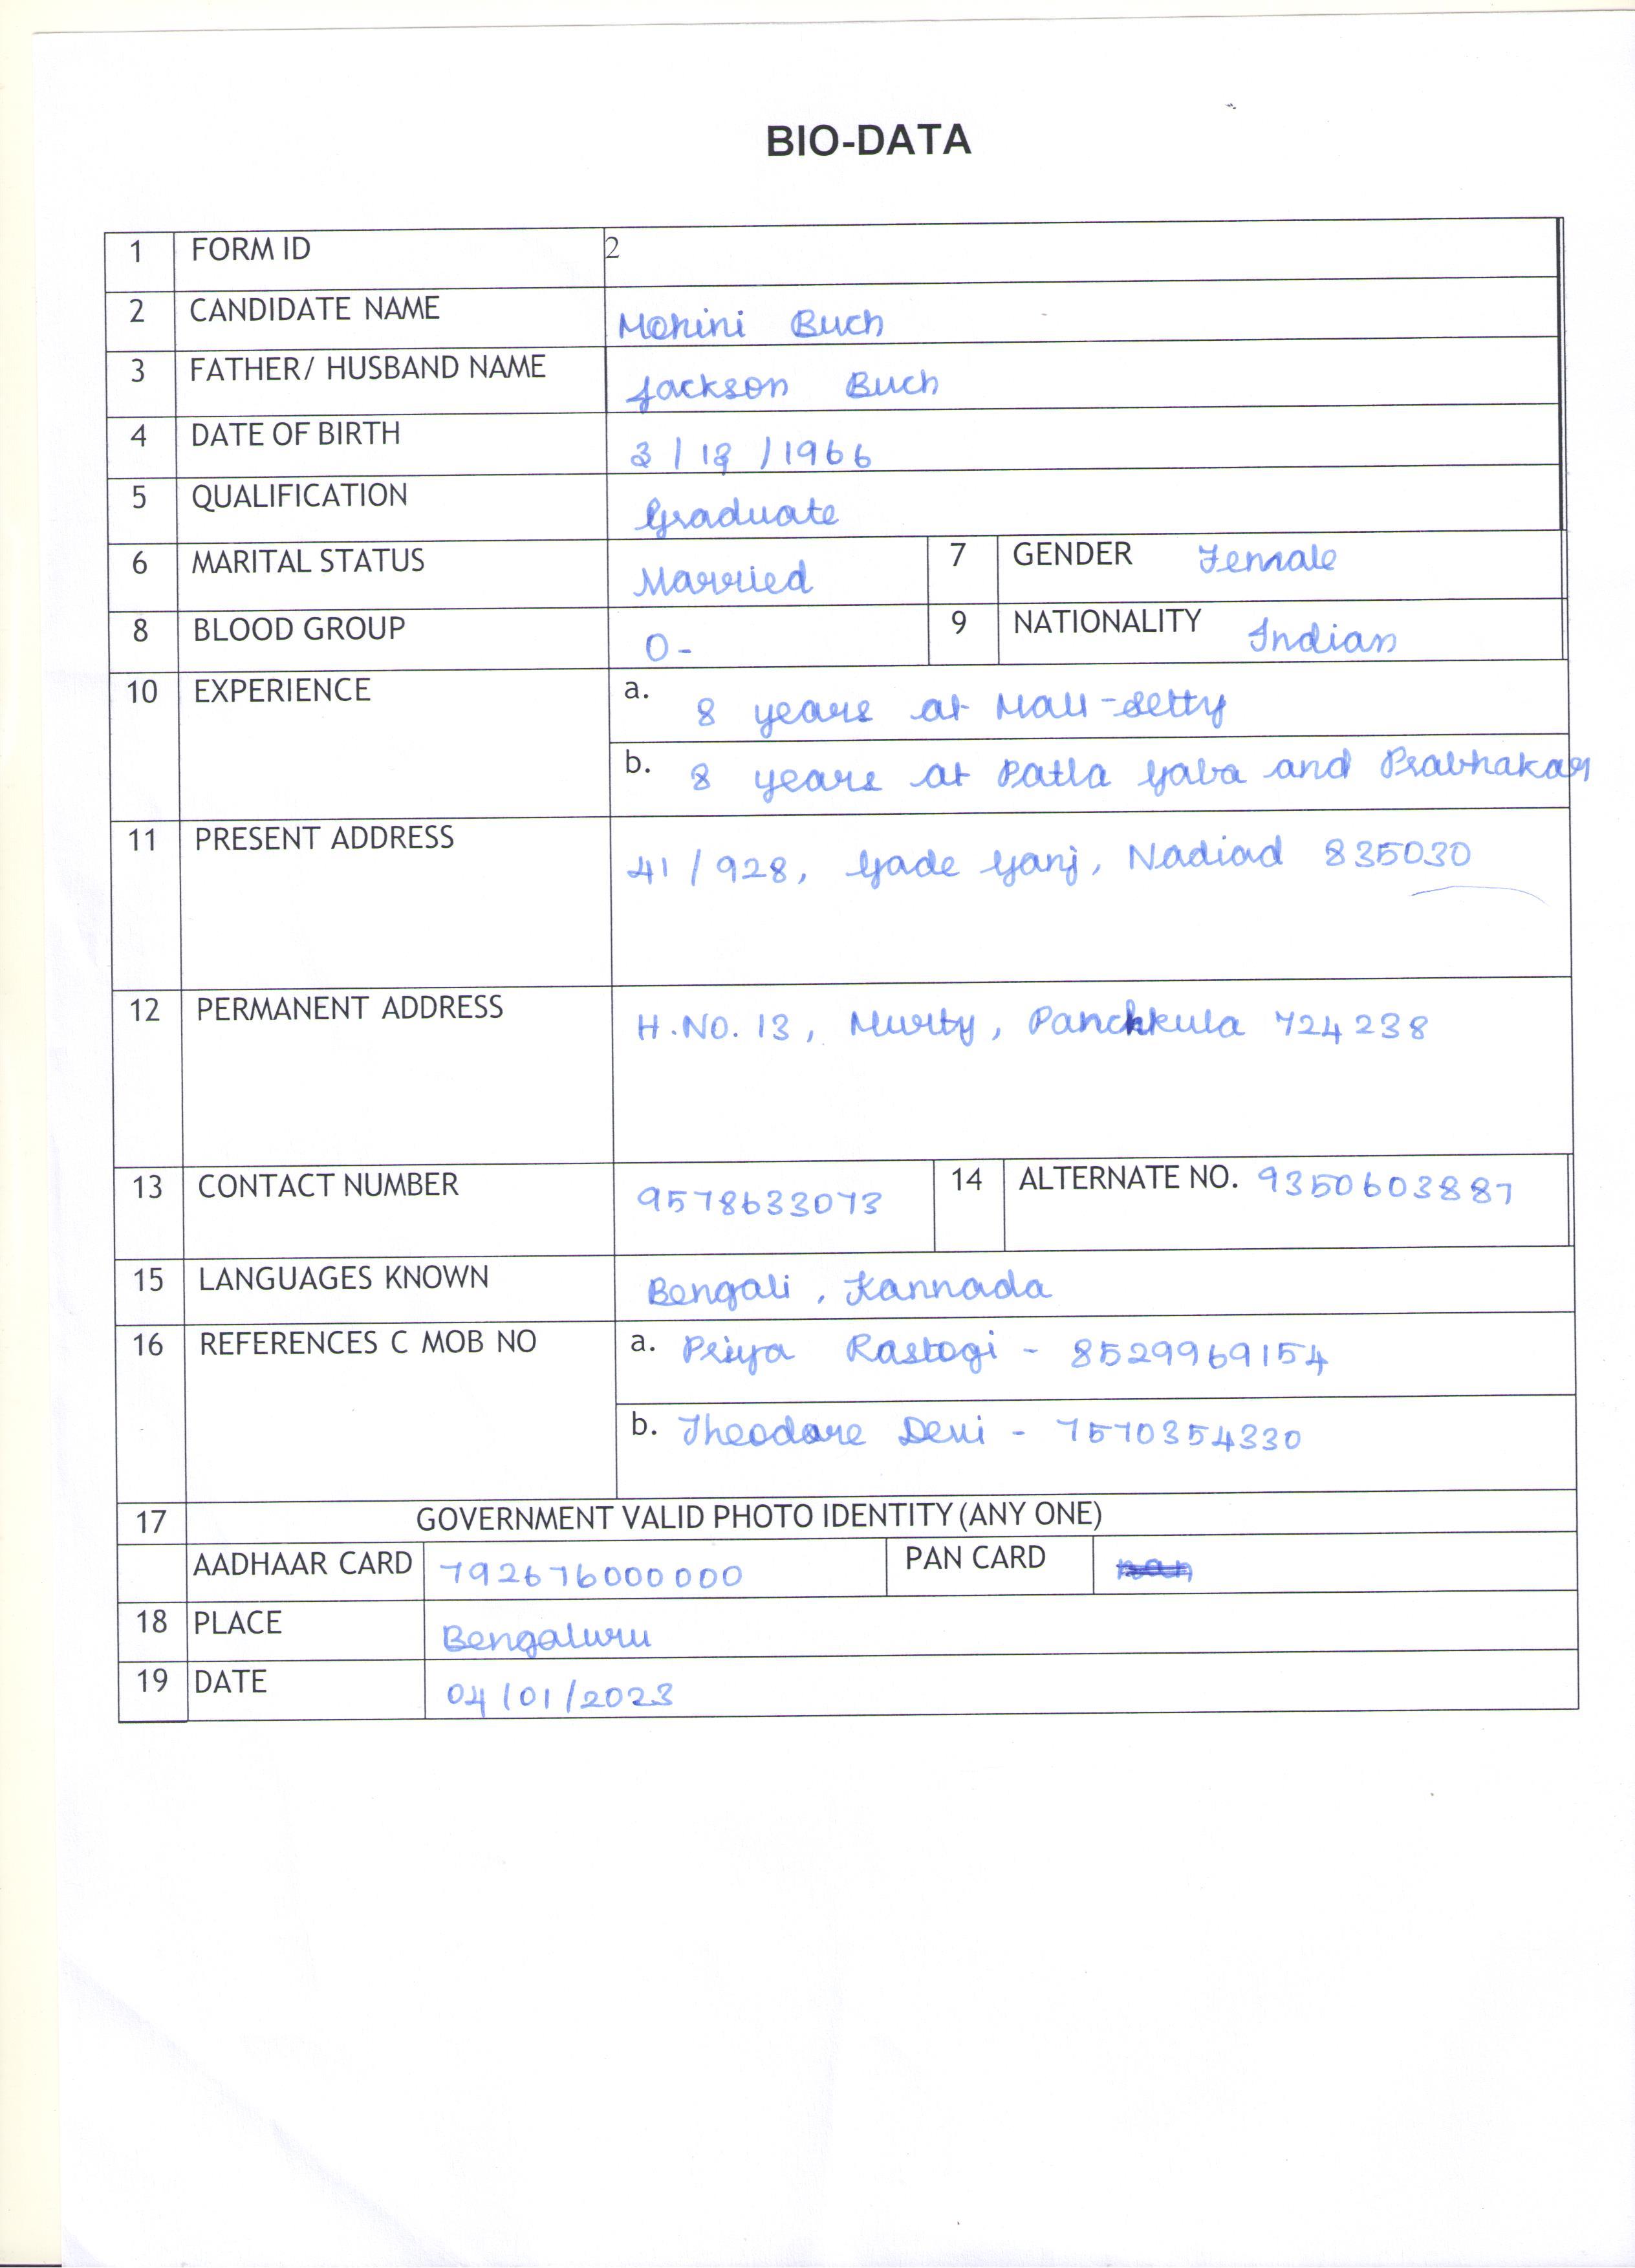 BIO-DATA
1 FORM ID 2
2 CANDIDATE NAME Mohini Buch
3 FATHER/ HUSBAND NAME Jackson Buch
4 DATE OF BIRTH 3/13/1966
5 QUALIFICATION Graduate
6 MARITAL STATUS Married 7 GENDER Female
8 BLOOD GROUP O- 9 NATIONALITY Indian
10 EXPERIENCE a. 8 years at Mall-Setty
b. 8 years at Patla Gaba and Prabhakar
11 PRESENT ADDRESS 41/928, Gade Ganj, Nadiad 835030
12 PERMANENT ADDRESS H.NO. 13, Murty, Panchkula 724238
13 CONTACT NUMBER 9578633073 14 ALTERNATE NO. 9350603887
15 LANGUAGES KNOWN Bengali, Kannada
16 REFERENCES C MOB NO a. Priya Rastogi - 8529969154
b. Theodore Devi - 7570354330
17 GOVERNMENT VALID PHOTO IDENTITY (ANY ONE)
AADHAAR CARD 792676000000 PAN CARD
18 PLACE Bengaluru
19 DATE 04/01/2023